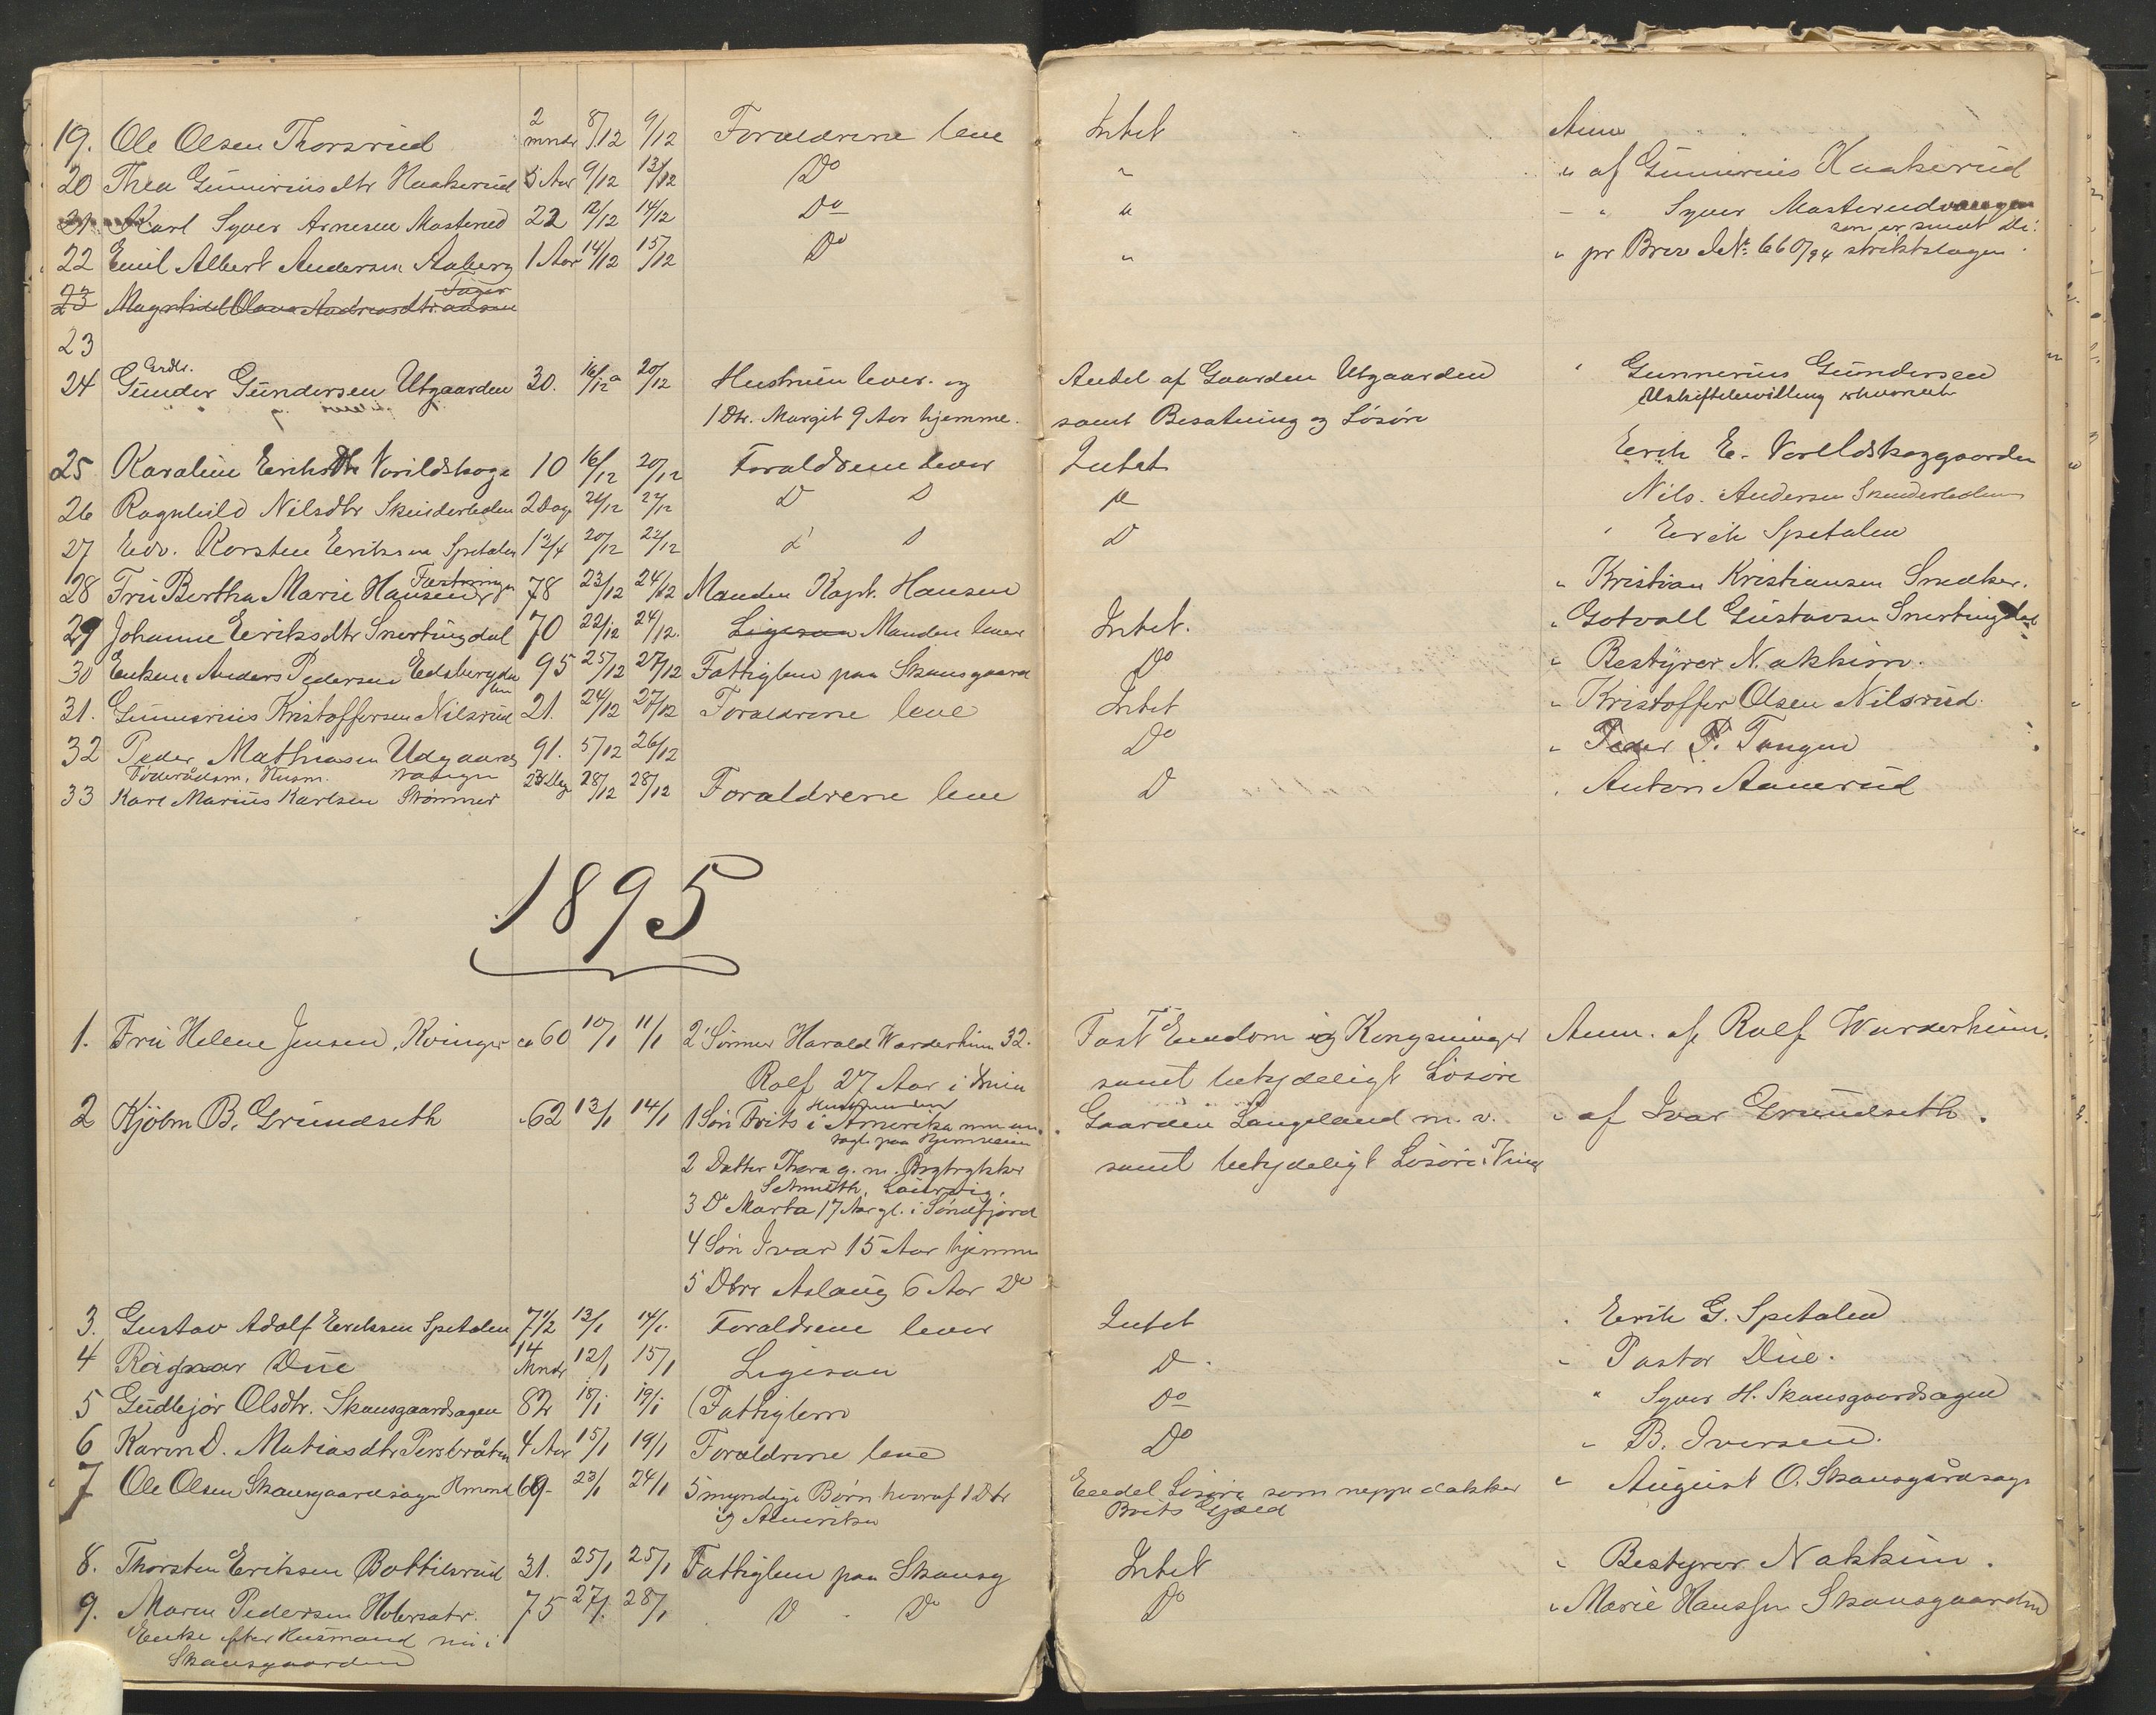 19. Ole Olsen Thorsrud 2 mndr 8/12 9/12 Forældrene leve Intet Anm
20 Thea Gunneriusdtr Haakerud 5 Aar 9/12 13/12 Do " " af Gunnerius Haakerud
21 Karl Syver Arnesen Masterud 22 12/12 14/12 Do " " Syver Masterudvangen
22 Emil Albert Andersen Aaberg 1 Aar 14/12 15/12 Do " " pr Brev J.No: 660/94
23 Olava Andreasdtr
23
24 Gunder Gundersen Utgaarden 30. 16/12 20/12 Hustruen lever. og Andel af Gaarden Utgaarden " Gunnerius Gundersen
1 Dtr. Margit 9 Aar hjemme. samt Besætning og Løsøre
25 Karoline Eriksdtr Vorildskoge 10 16/12 20/12 Forældrene lever Intet Erik E. Vorildskoggaarden
26 Ragnhild Nilsdtr Skinderleden 2 Dage 21/12 22/12 D D " Nils Andersen Skinderleden
27 Edv. Korsten Eriksen Spetalen 1 3/4 20/12 22/12 D D D " Erik Spetalen
28 Fru Bertha Marie Hansen Fæstningen 78 23/12 24/12 Manden Kapt. Hansen " Kristian Kristiansen Snedker.
29 Johanne Eriksdtr Snertingdal 70 22/12 24/12. Ligesaa Manden lever Intet. " Gotvall Gustavsen Snertingdal
30 Enken Anders Pedersen Edsbergdalen 95 25/12 27/12 Fattiglem paa Skansgaard Do " Bestyrer Nakkim.
31. Gunnerius Kristoffersen Nilsrud 21. 24/12 27/12 Forældrene leve Intet " Kristoffer Olsen Nilsrud.
32 Peder Mathiasen Udgaards 91. 5/12 26/12 Do " Peder P. Tangen
Føderådsm. Husm. vangen
33 Karl Marius Karlsen Strømmer 28/12 28/12 Forældrene leve D " Anton Aamerud
1895
1. Fru Helene Jensen, Kvinger ca 60 10/1 11/1 2 Sønner Harald Warderheim 32. Fast Eiendom og Kongsvinger Anm. af Rolf Warderheim.
Rolf 27 Aar i samt betydeligt Løsøre
2 Kjöbm B. Grundseth 62 13/1 14/1 1 Søn Frits i Amerika Gaarden Langeland m. v. " af Ivar Grundseth.
2 Datter Thora g. m. Bogtrykker samt betydeligt Løsøre i Ving
Schmith, Laurvig,
3 Do Marta 17 Aar gl. i Søndfjord
4 Søn Ivar 15 Aar hjemme
5 Dtr Aslaug 6 Aar Do
3. Gustav Adolf Eriksen Spetalen 7 1/2 13/1 14/1. Forældrene lever Intet " Erik G. Spetalen
4 Ragnar Due 14 Mndr 12/1 15/1 Ligesaa D. " Pastor Due.
5 Gudbjør Olsdtr. Skansgaardsagen 82 18/1 19/1 (Fattiglem Do " Syver H. Skansgaardsagen
6 Karen D. Matiasdtr Persbråten 4 Aar 15/1 19/1 Forældrene leve Do " B. Iversen.
7 Ole Olsen Skansgaardsagen 69 23/1 24/1 5 myndige Børn hvoraf 1 Dtr Endel Løsøre som neppe dækker " August O. Skansgårdsagn
i Amerika Boets Gjæld
8. Thorsten Eriksen Bottilsrud 31. 25/1 25/1 Fattiglem paa Skansg Intet " Bestyrer Nakkim.
9. Maren Pedersen Holersætr. 75 27/1. 28/1 D Do Do " Marie Hanssen Skansgaarden
Enke efter Husmand nu i
Skansgaarden